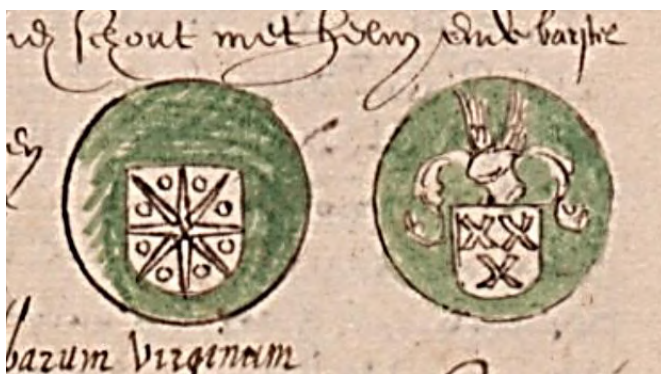 schout met helm ende
en
barum virginum